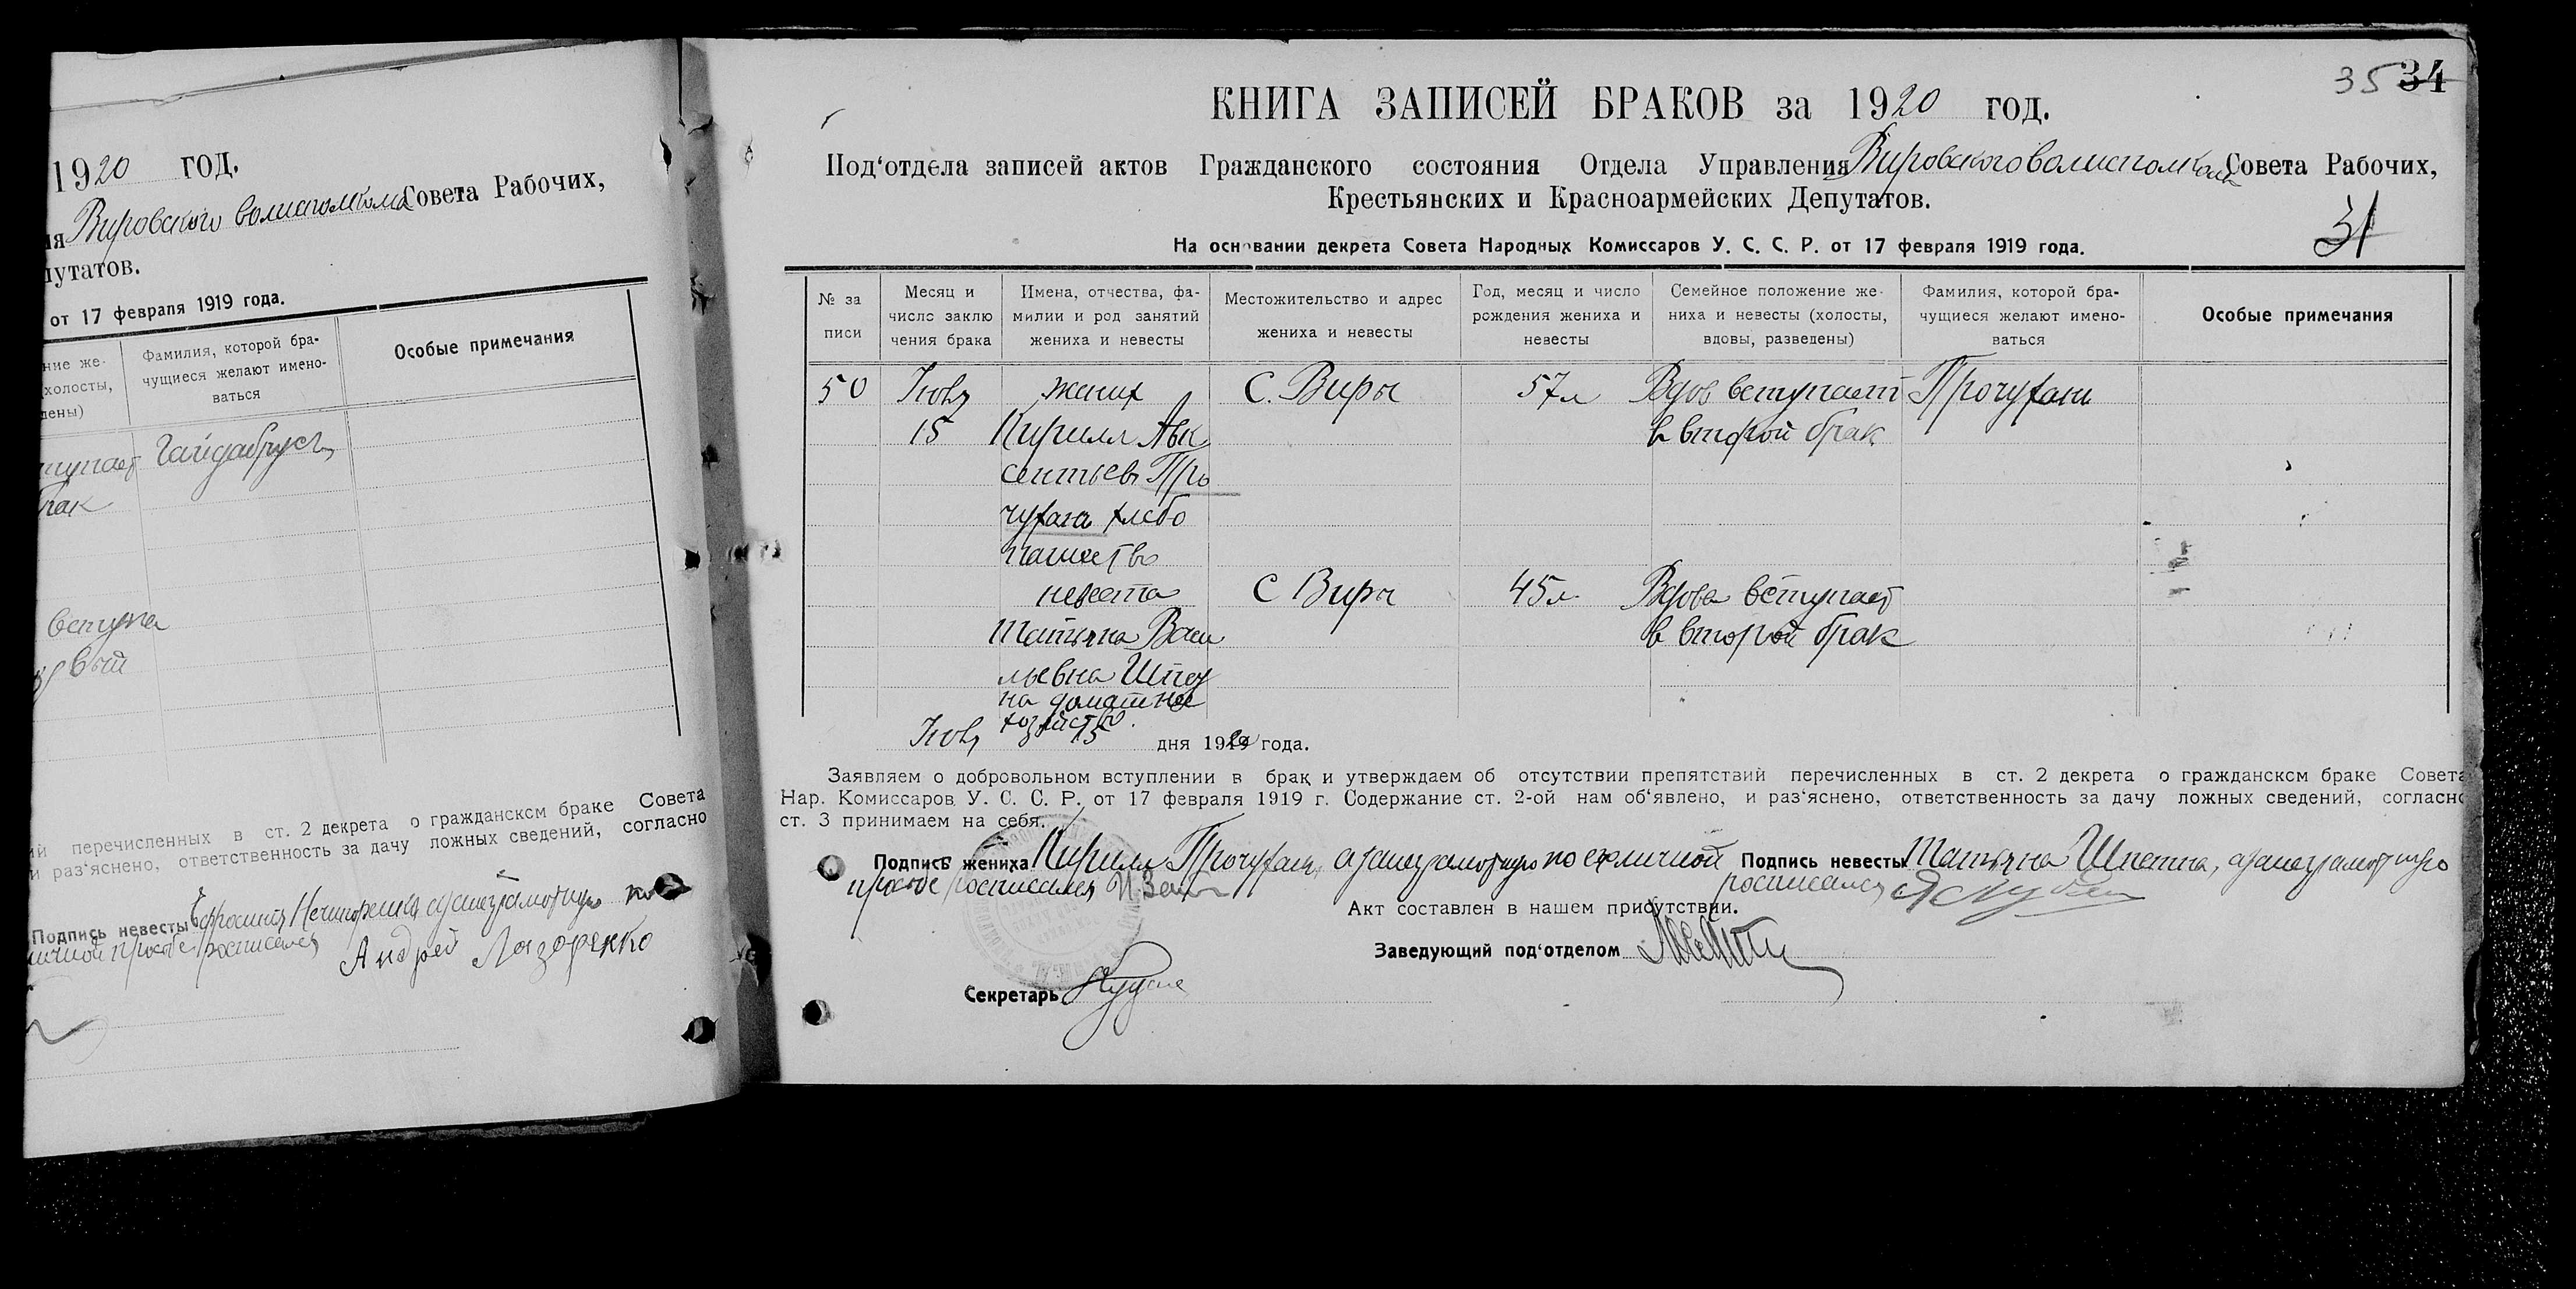 1920 год.
Вировского волисполкома Совета Рабочих,
путатов.
от 17 февраля 1919 года.
ние же-
холосты,
дены)
Фамилия, которой бра-
чущиеся желают имено-
ваться
Особые примечания
тупает Гайдабрусъ
брак
вступа
вый
ий перечисленных в ст. 2 декрета о гражданском браке Совета
и раз'яснено, ответственность за дачу ложных сведений, согласно
Подпись невесты
личной просьбе росписался Андрей Лазаренко
35 34
КНИГА ЗАПИСЕЙ БРАКОВ за 1920 год.
Под'отдела записей актов Гражданского состояния Отдела Управления Вировского волисполкома Совета Рабочих,
Крестьянских и Красноармейских Депутатов.
31
На основании декрета Совета Народных Комиссаров У. С. С. Р. от 17 февраля 1919 года.
№ за
писи
Месяц и
число заклю
чения брака
Имена, отчества, фа-
милии и род занятий
жениха и невесты
Местожительство и адрес
жениха и невесты
Год, месяц и число
рождения жениха и
невесты
Семейное положение же-
ниха и невесты (холосты,
вдовы, разведены)
Фамилия, которой бра-
чущиеся желают имено-
ваться
Особые примечания
50 жених С. Виры 57л Вдов вступает Прочухан
15 Кирилл Авк в второй брак
сентьев Про
чухан хлебо
пашество
невеста С Виры 45л. Вдова вступает
Татьяна Васи в второй брак
льевна Шпет
на домашнее
хозяйство.
15 дня 1920 года.
Заявляем о добровольном вступлении в брак и утверждаем об отсутствии препятствий перечисленных в ст. 2 декрета о гражданском браке Совета
Нар. Комиссаров У. С. С. Р. от 17 февраля 1919 г. Содержание ст. 2-ой нам об'явлено, и раз'яснено, ответственность за дачу ложных сведений, согласно
ст. 3 принимаем на себя.
Подпись жениха Кирилл Прочухан, Подпись невесты Татьяна Шпетна,
просьбе росписался росписался
Акт составлен в нашем присутствии.
Заведующий под'отделом
Секретарь